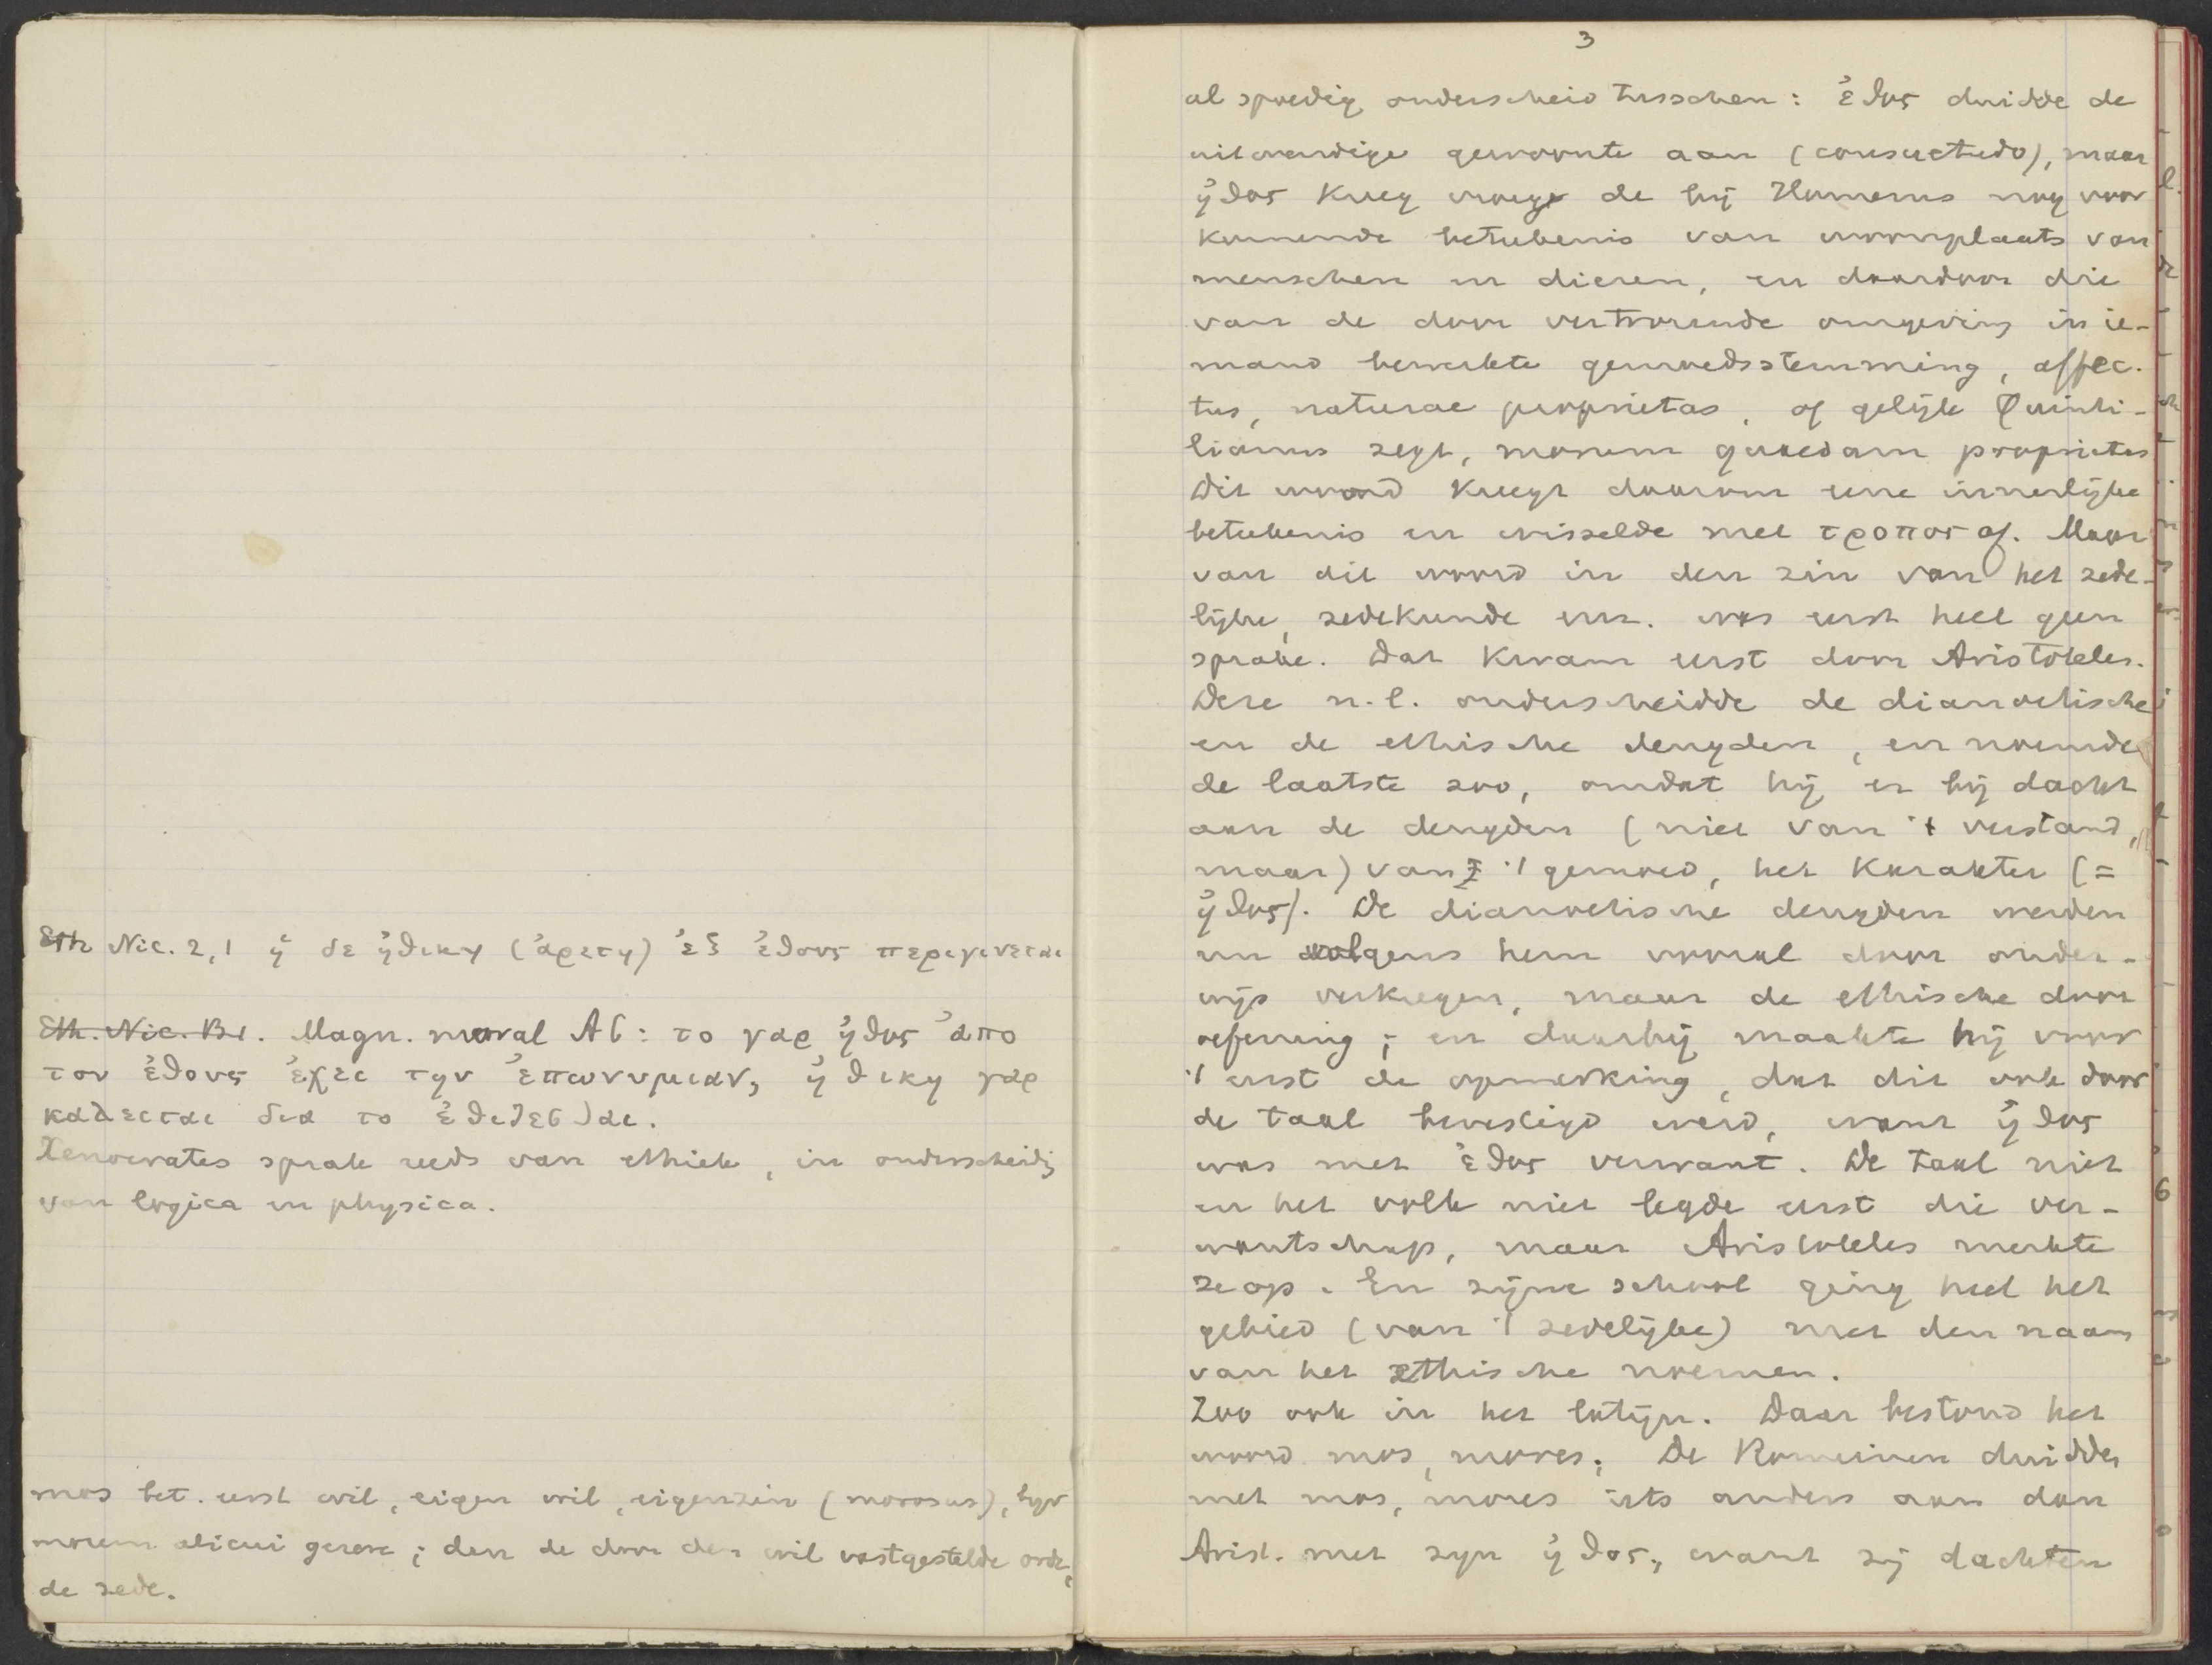 Eth Nic. 2,1 ἡ δε ἠθικη (ἀρετη) ἐξ ἐθους περιγινεται
Eth. Nic. B1. Magn. moral A6: το γαρ ἠθος ἀπο
του ἐθους ἐχει την ἐπωνυμιαν, ἠθικη γαρ
καλειται δια το ἐθιζεσθαι.
Xenocrates sprak reeds van ethiek, in onderscheidg
van logica en physica.
mos bet. eerst wil, eigen wil, eigenzin (morosus), bijv
morem alicui gerere; dan de door den wil vastgestelde orde,
de zede.
3
al spoedig onderscheid tusschen: ἐθος duidde de
uitwendige gewoonte aan (consuetudo), maar
ἠθος kreeg vroeger de bij Homerus nog voor
komende beteekenis van woonplaats van
menschen en dieren, en daardoor die
van de door vertrouwde omgeving in ie-
mand bewerkte gemoedsstemming, affec-
tus, naturae proprietas, of gelijk Quinti-
lianus zegt, morum quaedam proprietas
Dit woord kreeg daarom eene innerlijke
beteekenis en wisselde met τροπος af. Maar
van dit woord in den zin van het zede-
lijke, zedekunde enz. was eerst heel geen
sprake. Dat kwam eerst door Aristoteles.
Deze n.l. onderscheidde de dianoetische
en de ethische deugden, en noemde
de laatste zoo, omdat hij er bij dacht
aan de deugden (niet van 't verstand,
maar) van 't gemoed, het karakter (=
ἠθος). De dianoetische deugden werden
nu volgens hem vooral door onder-
wijs verkregen, maar de ethische door
oefening; en daarbij maakte hij voor
't eerst de opmerking, dat dit ook door
de taal bevestigd werd, want ἠθος
was met ἐθος verwant. De taal niet
en het volk niet legde eerst die ver-
wantschap, maar Aristoteles merkte
ze op. En zijne school ging heel het
gebied (van 't zedelijke) met den naam
van het ethische noemen.
Zoo ook in het latijn. Daar bestond het
woord mos, mores. De Romeinen duidden
met mos, mores iets anders aan dan
Arist. met zijn ἠθος, want zij dachten